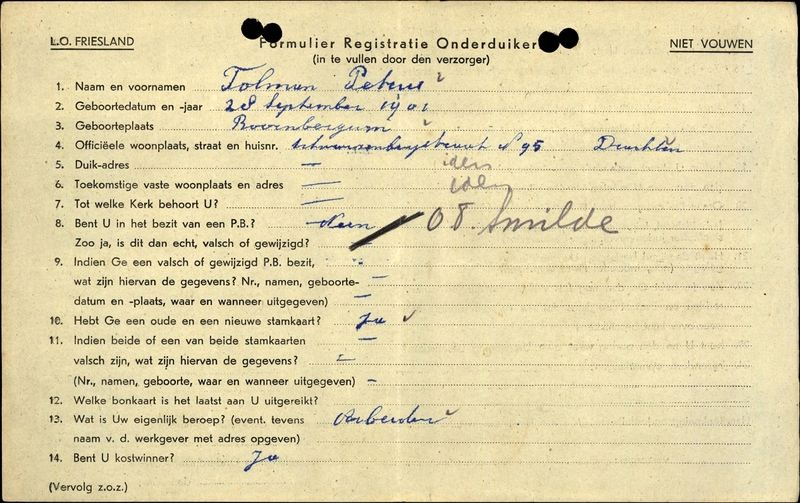 L.O. FRIESLAND
Formulier Registratie Onderduiker
NIET VOUWEN
(in te vullen door den verzorger)
1. Naam en voornamen Tolman Petrus
2. Geboortedatum en -jaar 28 September 1901
3. Geboorteplaats Boornbergum
4. Officiëele woonplaats, straat en huisnr. N 95 Drachten
5. Duik-adres — idem
6. Toekomstige vaste woonplaats en adres — idem
7. Tot welke Kerk behoort U? —
8. Bent U in het bezit van een P.B.? Neen O8. Smilde
Zoo ja, is dit dan echt, valsch of gewijzigd? —
9. Indien Ge een valsch of gewijzigd P.B. bezit,
wat zijn hiervan de gegevens? Nr., namen, geboorte- —
datum en -plaats, waar en wanneer uitgegeven) —
10. Hebt Ge een oude en een nieuwe stamkaart? Ja
11. Indien beide of een van beide stamkaarten —
valsch zijn, wat zijn hiervan de gegevens? —
(Nr., namen, geboorte, waar en wanneer uitgegeven) —
12. Welke bonkaart is het laatst aan U uitgereikt?
13. Wat is Uw eigenlijk beroep? (event. tevens Arbeider
naam v. d. werkgever met adres opgeven)
14. Bent U kostwinner? Ja
(Vervolg z.o.z.)